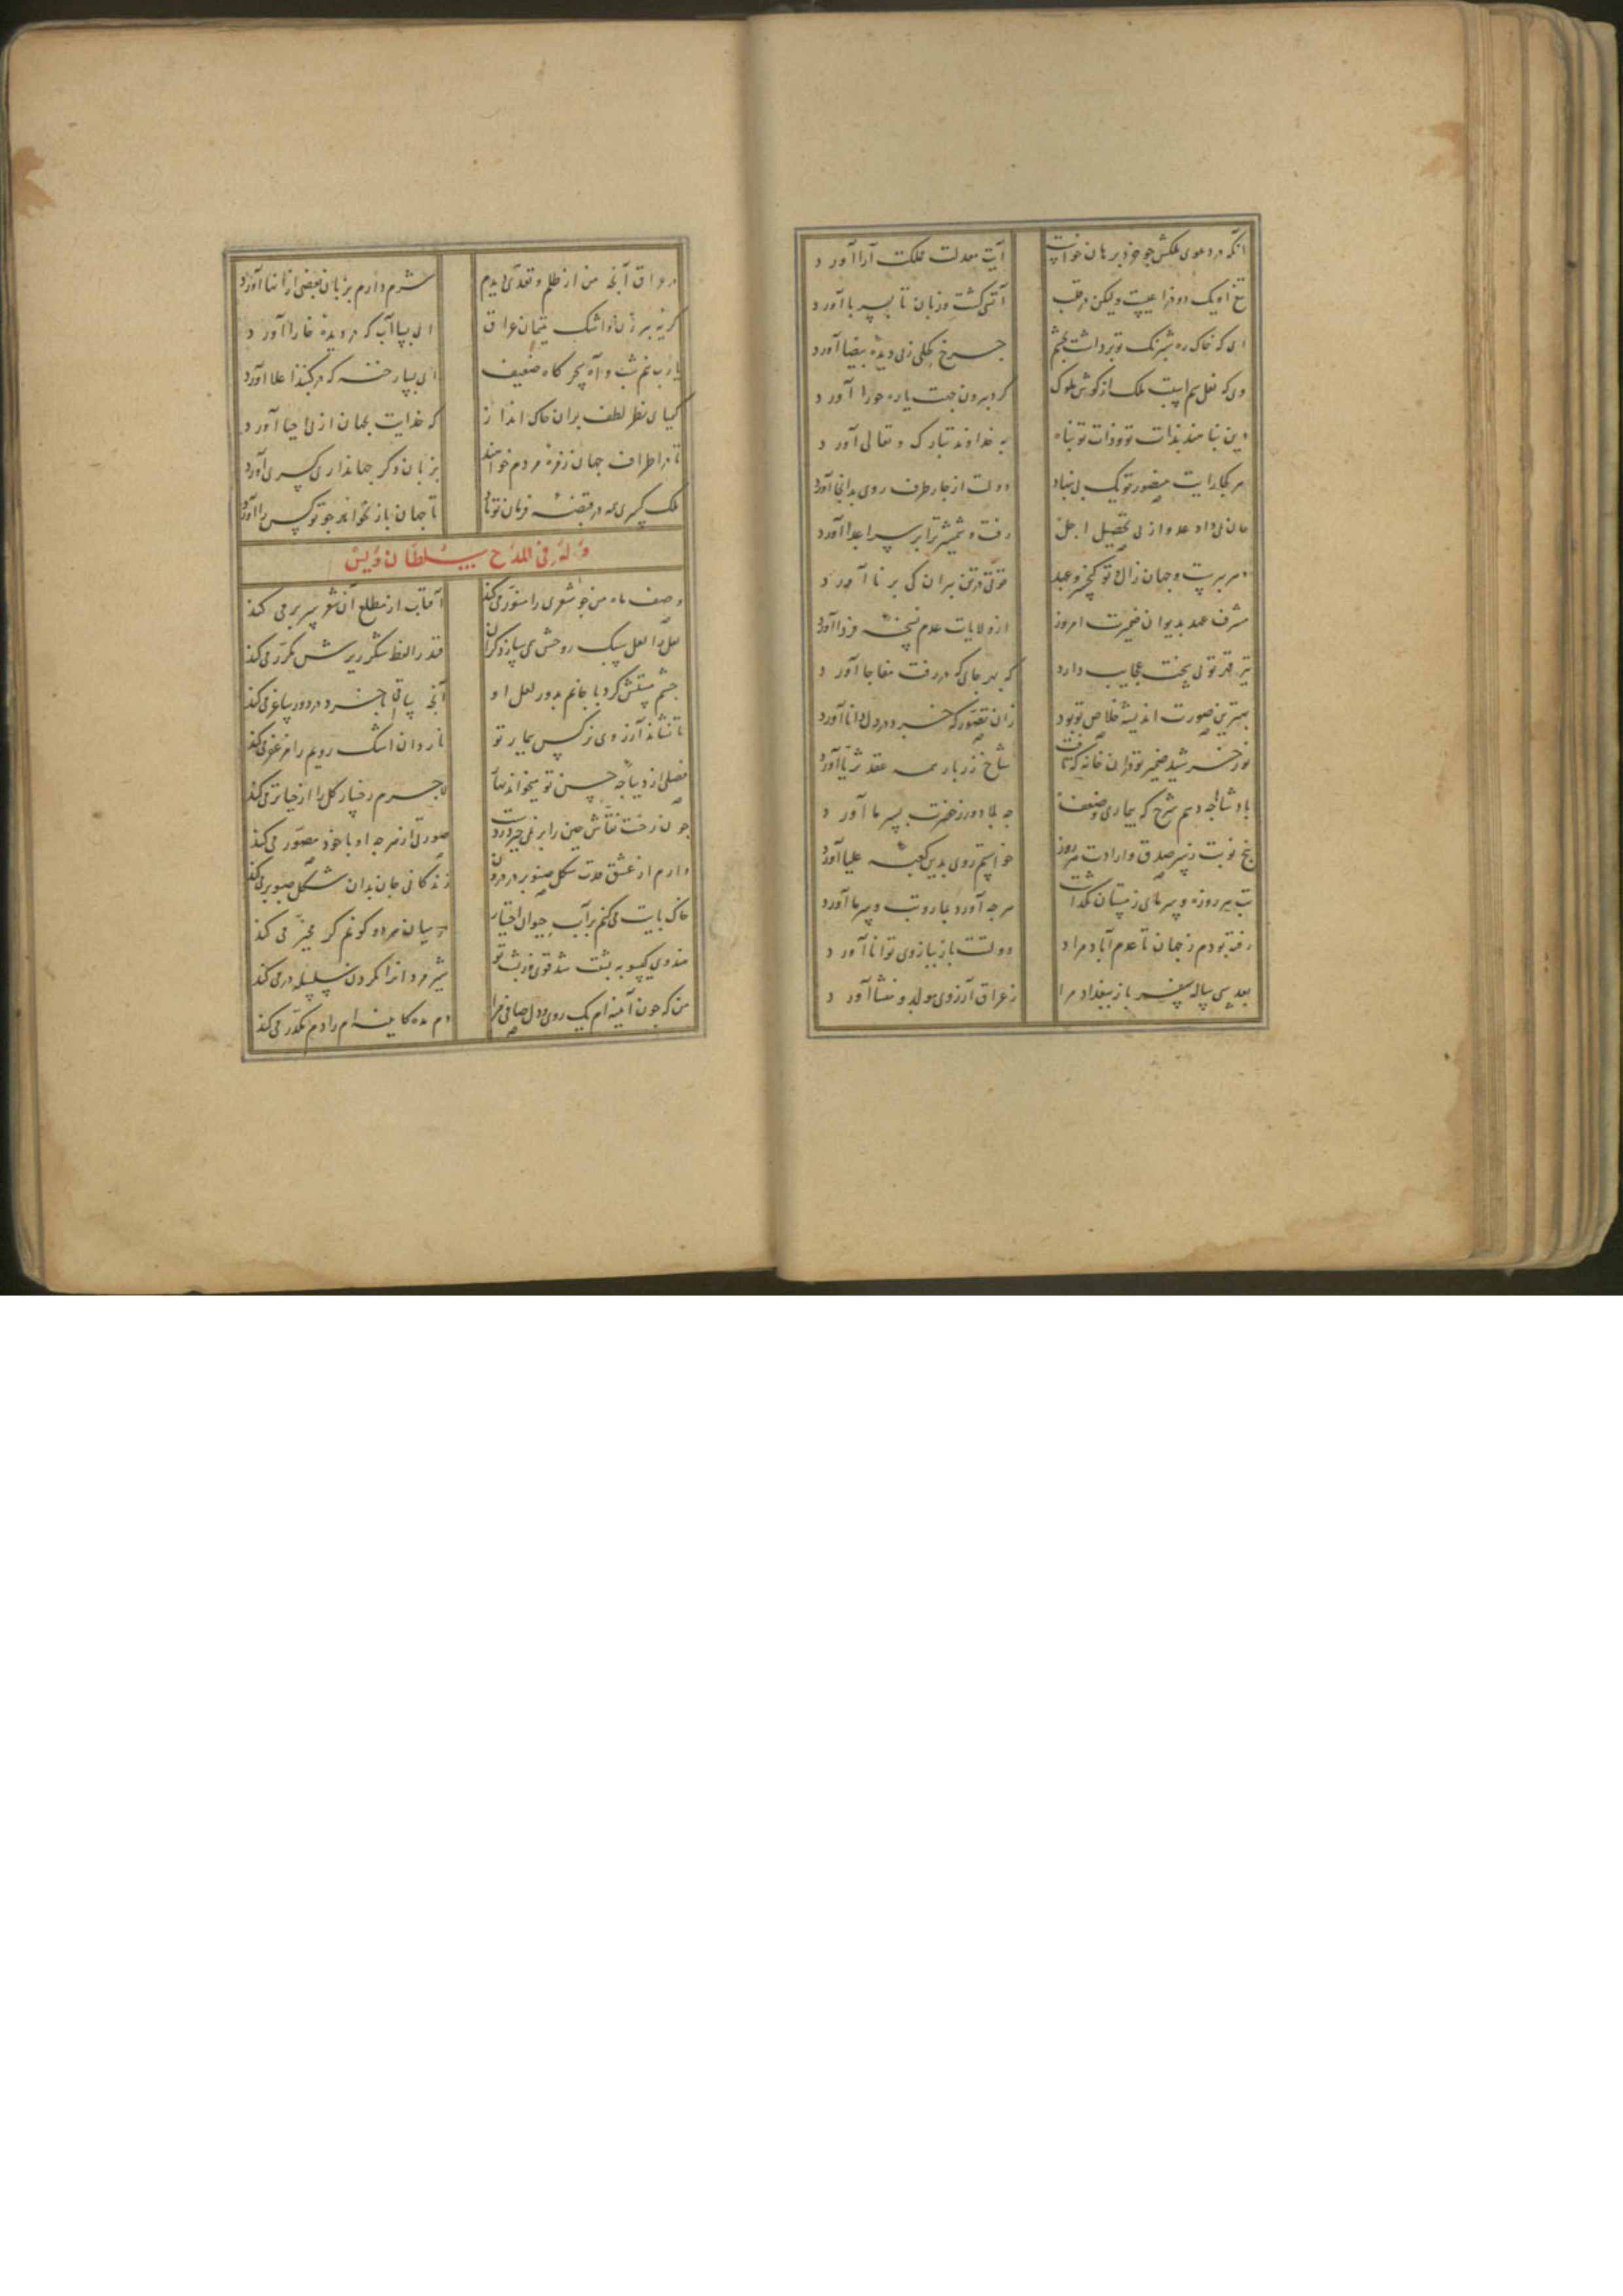 آنکه در دعوی ملکش چو خرد برهان خواست آیت معدلت مملکت آرا آورد
تیغ او یک دو فراعیست ولیکن در قلب آتش کشت و زبان تا بسر با آورد
ای که خاک ره شبرنک تو برداشت بچشم چرخ کحلی زبی دیده بیضا آورد
وی که نعل سم اسبت ملک از کوش ملوک کرد بیرون جهت یاره حورا آورد
دین بنا هند بذات تو و ذات تو بناه به خداوند تبارک و تعالی آورد
هر کجا رایت منصور تو یک بی بنهاد دولت از جار طرف روی بدانجا آورد
جان می داد عدو از بی تحصیل اجل رفت و شمشیر ترا بر سر اعدا آورد
دهر بیرست و جهان زال تو کیخسرو عهد قوتی در تن بیران کی برنا آورد
مشرف عهد بدیوان ضمیرت امروز از ولایات عدم نسخه فردا آورد
تیر قدر تو بی بخت عجایب دارد که بهر جای که در رفت مفاجا آورد
بهترین صورت اندیشه خلاص تو بود زان تصور که خرد در دل دانا آورد
نور خورشید ضمیر تو در ان خانه که تافت شاخ زر بار همه عقد ثریا آورد
بادشاها جه دهم شرح که بیماری و ضعف جه بلا دور ز حضرت بسر ما آورد
بنج نوبت ز سر صدق و ارادت هر روز خواستم روی بدین کعبه علیا آورد
تب هر روزه و سرمای زمستان نکذاشت هر جه آورد بما رو تب و سرما آورد
رفته بودم ز جهان تا عدم آباد مراد دولتت باز ببازوی توانا آورد
بعد سی سال سفر باز ببغداد مرا ز عراق آرزوی مولد و منشا آورد
در عراق آنچه من از ظلم و تعدی دیدم شرم دارم بزبان بعضی از انها آورد
کریه بیر زنان و اشک یتیمان عراق ای بسا آب که در دیده خارا آورد
یارب نیم شب و آه سحرکاه ضعیف ای بسا رخنه که در کنبد اعلا آورد
کیمیای نظر لطف بران خاک انداز که خدایت بجهان از بی احیا آورد
تا در اطراف جهان زمره مردم خوانند بزبان ذکر جهانداری کسری آورد
ملک کسری همه در قبضه فرمان تو باد تا جهان باز نخواند جو تو کسری را آورد
وله فی المدح سلطان ویس
وصف ماه من جو شعری را منور می کند آفتاب از مطلع آن شعر سر بر می کند
لعل را لعل سبک روحش می سازد کران قند را لفظ شکر ریزش مکرر می کند
جشم مستش کرد با جانم بدور لعل او آنچه ساقی با خرد در دور ساغر می کند
تا نشاند آرزوی نرکس بیمار تو ناردان اشک رویم را مزعفر می کند
فصلی از دیباجه حسن تو میخواند نهان لاجرم رخسار کل را از حیا تر می کند
جون رخت نقاش جین را بر نمی خیزد ز دست صورتی از هر جه او با خود مصور می کند
دارم از عشق قدت شکل صنوبر در درون زندکانی جان بدان شکل صنوبر می کند
خاک بایت می کنم بر آب حیوان اختیار در میان هر دو کوثر کر مخیر می کند
هندوی کیسو به بشت شد قوی در بشت تو شیر مرد انرا بکردن سلسله در می کند
من که جون آینه ام یک روی و دل صافی ترا دم مده کاینه ام را دم مکدر می کند